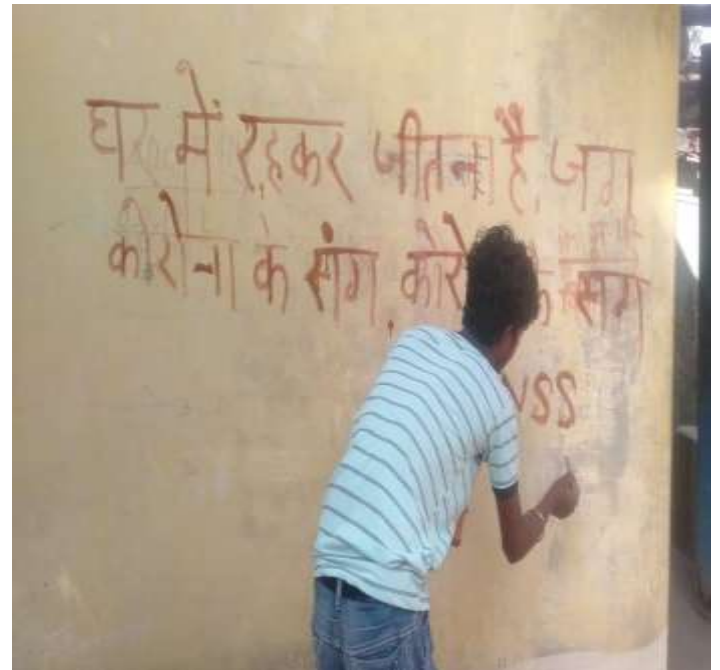 घर में रहकर जीतना है, जग
कोरोना के संग, के संग
SS